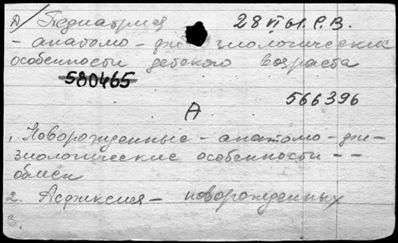 А) Педиатрия 28 VI 61. Р.В.
- анатомо-физиологические
особенности детского возраста
580465
566396
А
1. Новорожденные - анатомо-фи-
зиологические особенности --
обмен
2. Асфиксия - новорожденных
3.